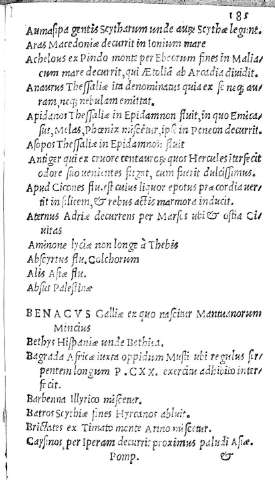 185
Aumasipa gentis Scytharum unde aurũ Scythæ legunt.
Aras Macedoniæ decurrit in Ionium mare
Achelous ex Pindo monte per Ebecorum fines in Malia/
cum mare decurrit, qui Ætoliã ab Arcadia diuidit.
Anaurus Thessaliæ ita denominatus quia ex se neq; au/
ram, neq; nebulam emittat.
Apidanos Thessaliæ in Epidamnon fluit, in quo Enica/
sus, Melas, Phœnix miscetur, ipse in Peneon decurrit.
Asopos Thessaliæ in Epidamnon fluit
Antiger qui ex cruore centaurorũ quos Hercules iterfecit
odore suo uenientes fugat, cum fuerit dulcissimus.
Apud Cicones flu. est cuius liquor epotus præcordia uer/
tit in silicem, & rebus actis marmora inducit.
Aternus Adriæ decurrens per Marsos ubi & ostia Ci/
uitas
Aminone lyciæ non longe à Thebis
Absyrtus flu. Colchorum
Alis Asiæ flu.
Absus Palestinæ
BENACVS Galliæ ex quo nascitur Mantuanorum
Mincius
Bethys Hispaniæ unde Bethica.
Bagrada Africæ iuxta oppidum Musti ubi regulus ser/
pentem longum P. CXX. exercitu adhibito inter/
fecit.
Barbenna Illyrico miscetur.
Batros Scythiæ fines Hyrcanos abluit.
Brictates ex Timato monte Arno miscetur.
Caysinos, per Iperam decurrit proximus paludi Asiæ.
Pomp. &